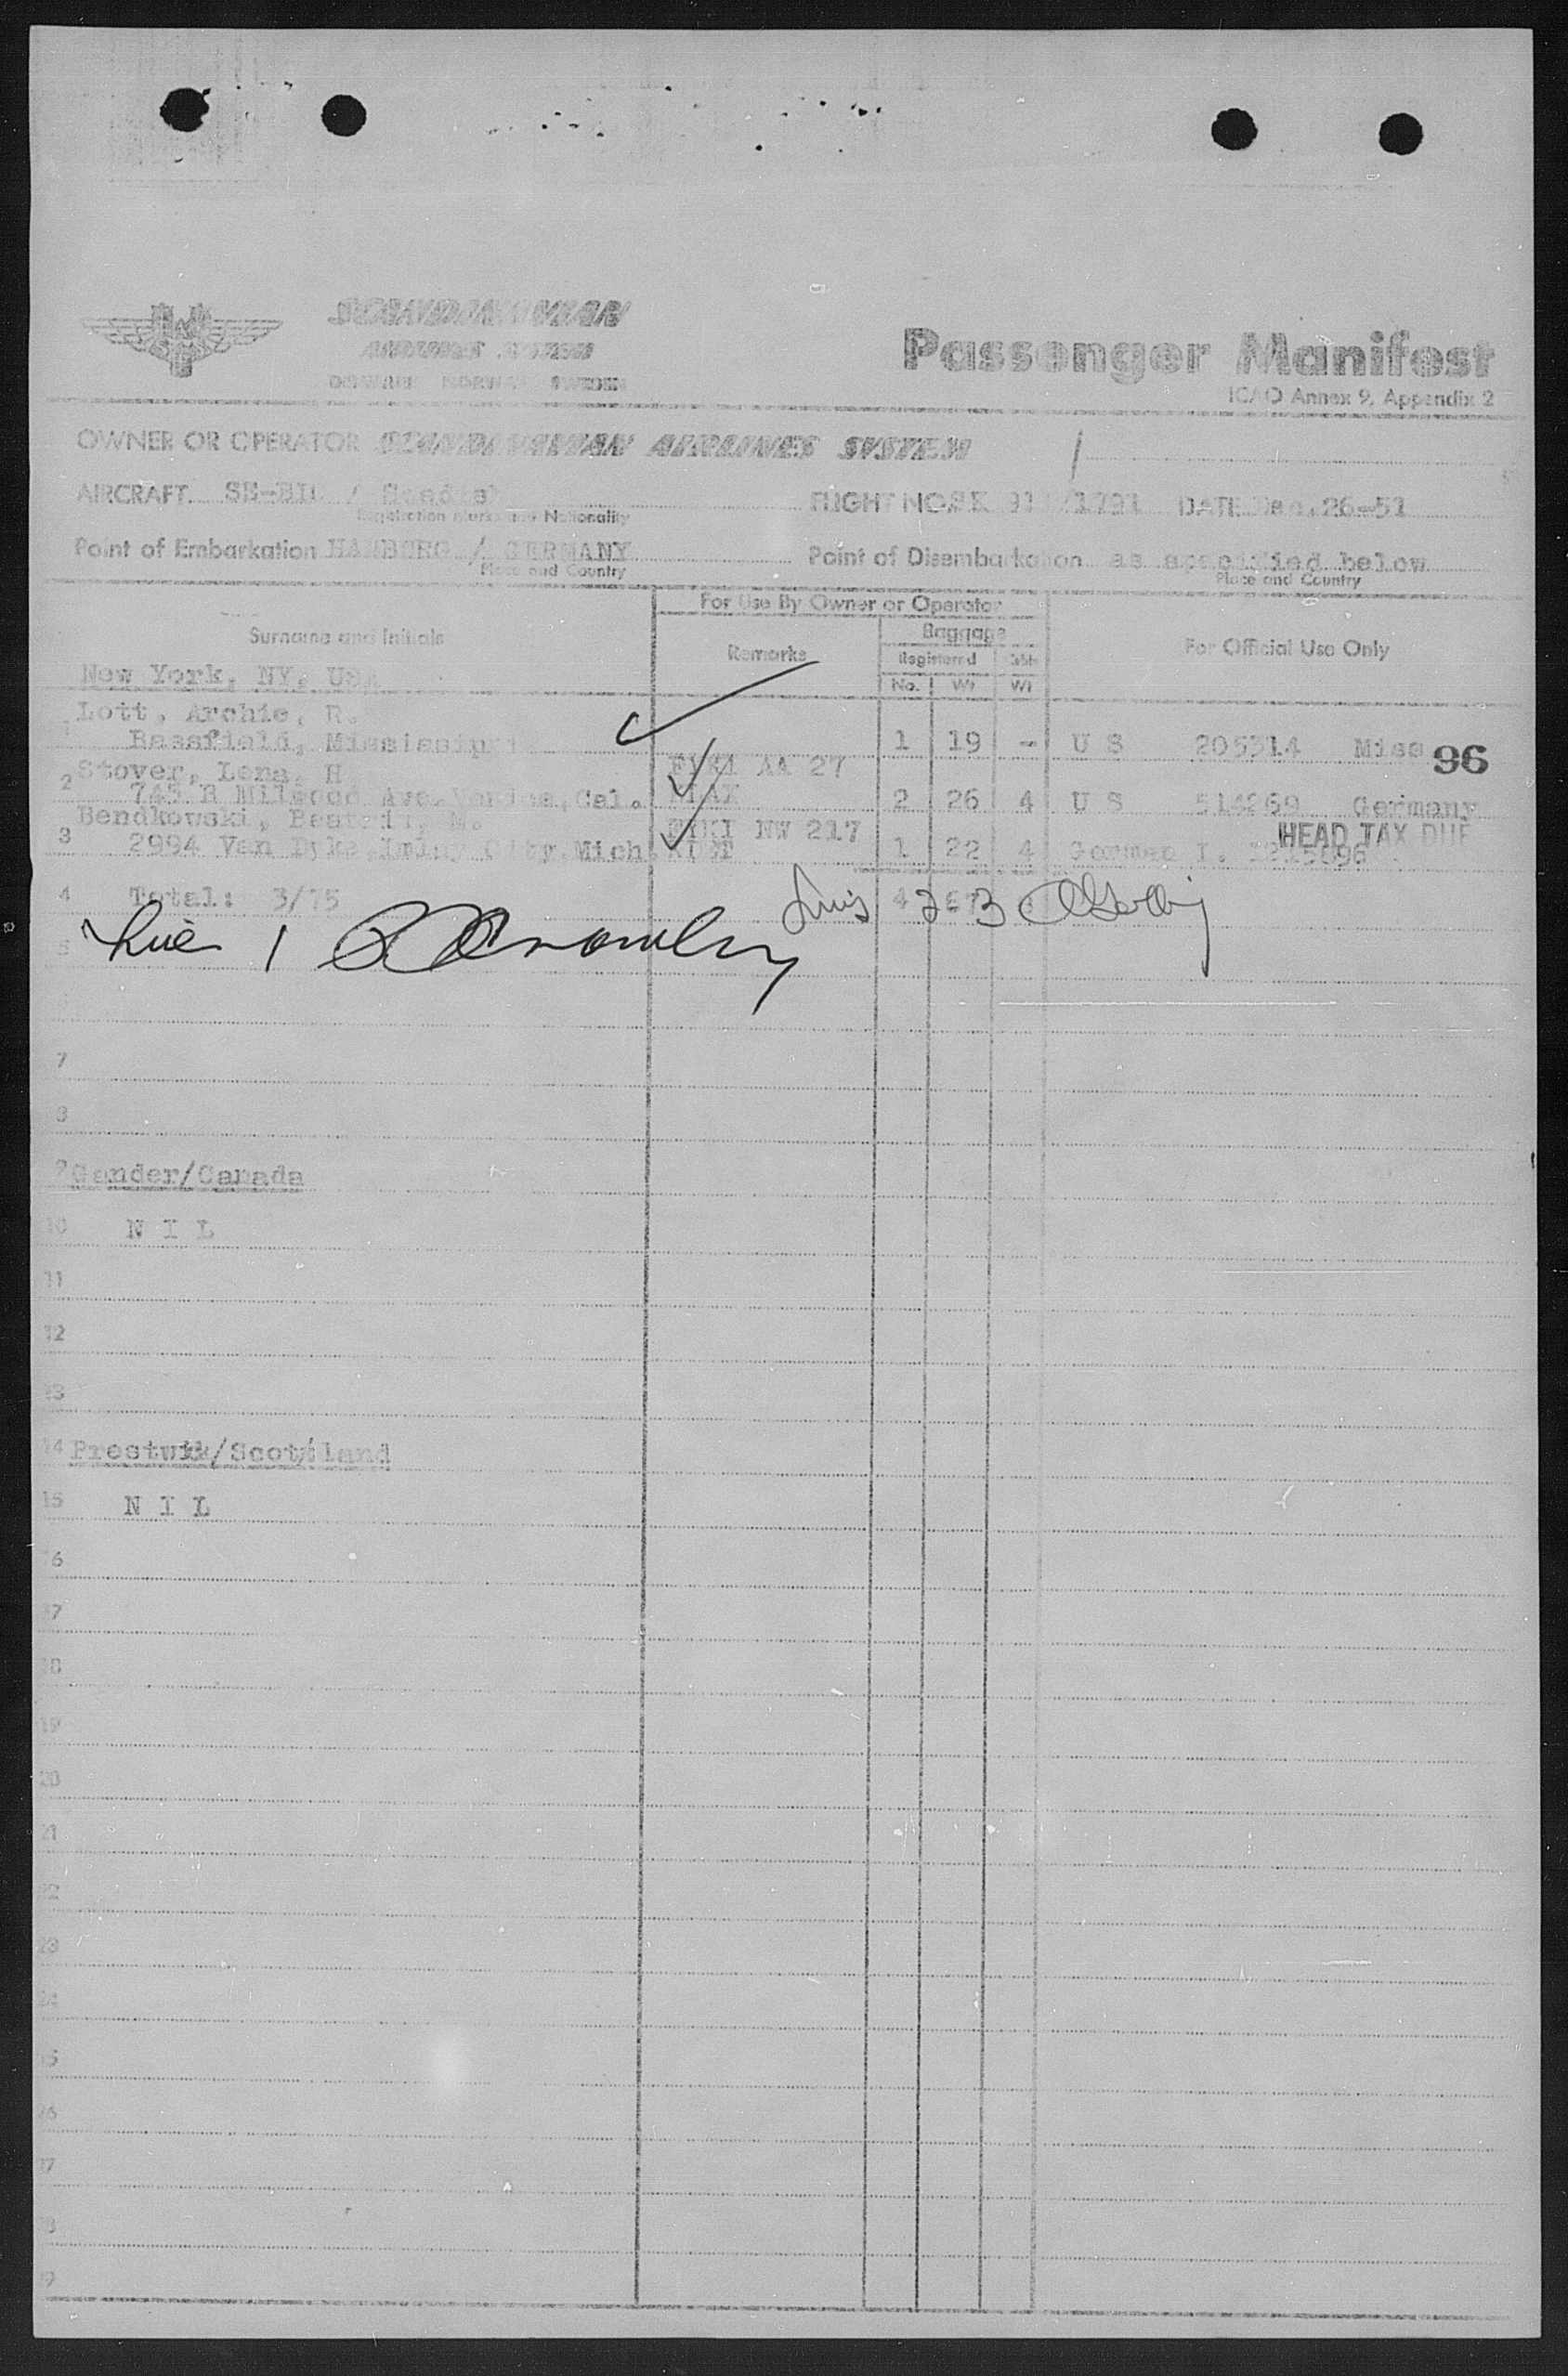 SCANDINAVIAN
AIRLINES SYSTEM
DENMARK NORWAY SWEDEN
Passenger Manifest
ICAO Annex 9, Appendix 2
OWNER OR OPERATOR SCANDINAVIAN AIRLINES SYSTEM
AIRCRAFT. FLIGHT NO. SK DATE 26-51
Registration marks and Nationality
Point of Embarkation HAMBURG / GERMANY Point of Disembarkation as specified below
Place and Country Place and Country
For Use By Owner or Operator
Surname and Initials Remarks Baggage For Official Use Only
Registered
No. Wt Wt
New York, NY, USA
Lott, Archie, R.
Bassfield, Mississippi 1 19 - U S 205314 Miss 96
Stover, Lena, H AA 27
2 Ave. Cal. 2 26 4 U S Germany
Bendkowski, M. NW 217
3 2994 Van Dyke, Imlay City, Mich. 1 22 4 German HEAD TAX DUE
4 Total: 3/75 4 67 Lines 2-3
5 Line 1
7
8
9 Gander/Canada
10 N I L
11
12
13
14 Prestwik/Scotland
15 N I L
16
17
18
19
20
21
22
23
24
25
26
27
28
29